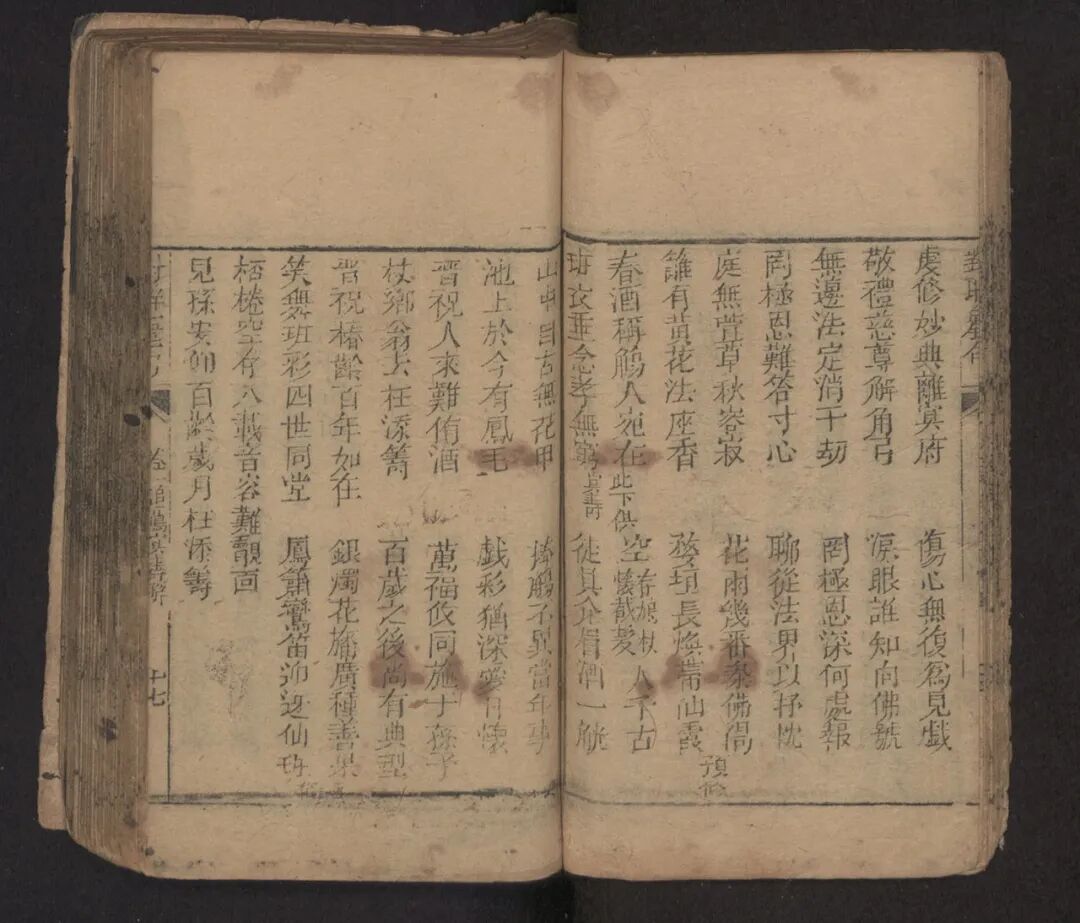 虔修妙典離冥府 傷心無復爲兒戯
敬禮慈尊解角弓 淚眼誰知向佛號
無邊法定消千劫 罔極恩深何處報
罔極恩難答寸心 聊從法界以抒忱
庭無萱草秋容寂 花雨幾番黍佛偈 預修
籬有黃花法座香 婺垣長煥耑仙霞
春酒稱觴人宛在 此下供 空懷截髮 春娘杖 人千古
垂念孝無窮 徒具介眉酒一觥
山中自古無花甲 捧觴不異當年事
池上於今有鳳毛 戯彩猶深愛日懷
晋祝人來難侑酒 萬福攸同施于孫子
杖鄉翁去枉添籌 百歲之後尚有典型
晋祝椿齡百年如在 銀燭花觴廣種善果
笑舞班彩四世同堂 鳳簫鸞笛迎迓仙
桮棬空存八載音容難覿面
兒孫安仰百齡歲月枉添籌
卷一 十七